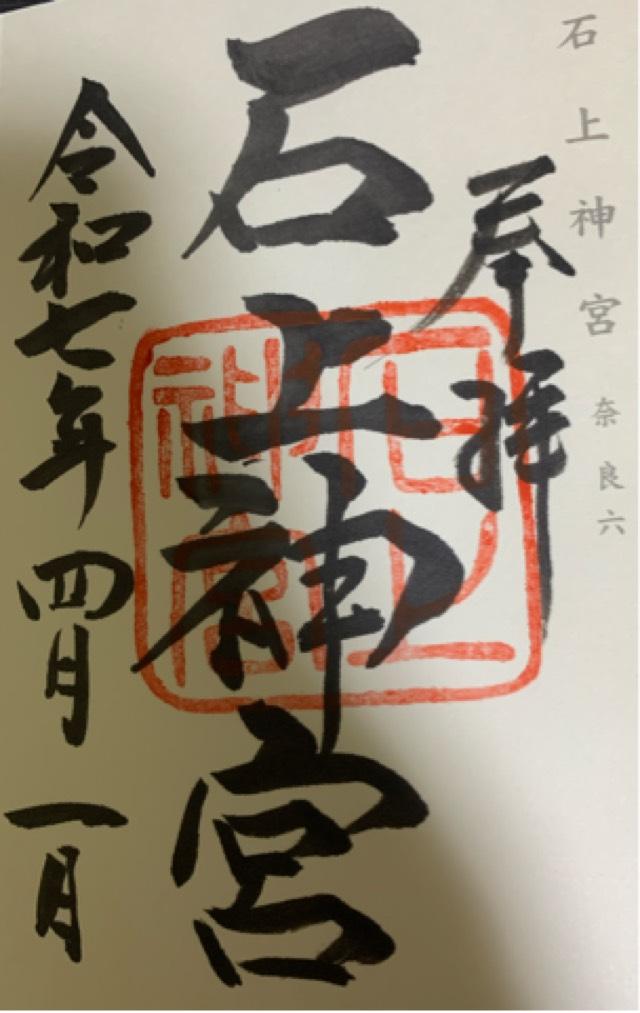 石上神宮 奈良六
奉拝
石上神宮
令和七年四月一月